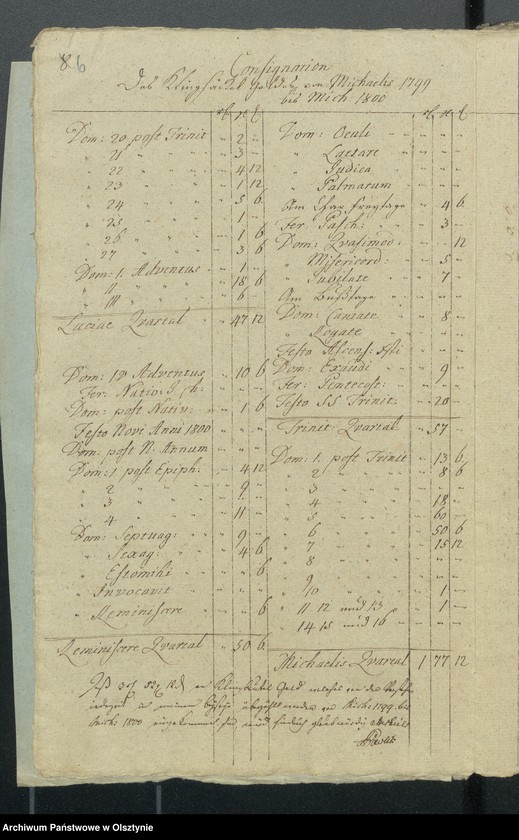 86
Consignation
Des Klingsäckel Geldes von Michaelis 1799
bis Mich 1800
Dom: 20 post Trinit " 2 "
" 21 " " " 3 "
" 22 " " " 4 12
" 23 " " " 1 12
" 24 " " " 5 6
" 25 " " " 1 "
" 26 " " " 1 6
" 27 " " " 3 6
Dom: 1. Adventus " 1 "
" II " " " 18 6
" III " " " 6 "
Luciae Quartal " 47 12
Dom: IV Adventus " 10 6
Fer: Nativ: J. Ch: " " "
Dom: post Nativ: " 1 6
Festo Novi Anni 1800 " " "
Dom: post N. Annum " " "
Dom: 1 post Epiph: " 4 12
" 2 " " " 9 "
" 3 " " " 1 "
" 4 " " " 11 "
Dom: Septuag: " 9 "
" Sexag: " 4 6
" Estomihi " " 6
" Invocavit " " "
" Reminiscere " " 6
Reminiscere Quartal " 50 6
Dom: Oculi " " "
" Laetare " " "
" Judica " " "
" Palmarum " " "
Am Char Freytage " 4 6
Fer: Pasch: " 3 "
Dom: Quasimod: " " 12
" Misericord: " 5 "
" Jubilate " 7 "
Am Bußtage " " "
Dom: Cantate " 8 "
" Rogate " " "
Festo Ascens: Xsti
Dom: Exaudi " 9 "
Fer: Pentecost: " " "
Festo SS Trinit: " 20 "
Trinit: Quartal " 57 "
Dom: 1. post Trinit " 13 6
" 2 " " " 8 6
" 3 " " " " "
" 4 " " " 18 "
" 5 " " " 60 "
" 6 " " " 50 6
" 7 " " " 15 12
" 8 " " " " "
" 9 " " " " "
" 10 " " " 1 "
" 11 12 und 13 " 1 "
" 14 15 und 16 " " "
Michaelis Quartal 1 77 12
Daß
Klingsäckel Geld
von Mich: 1799 bis
Mich: 1800
Archiwum Państwowe w Olsztynie